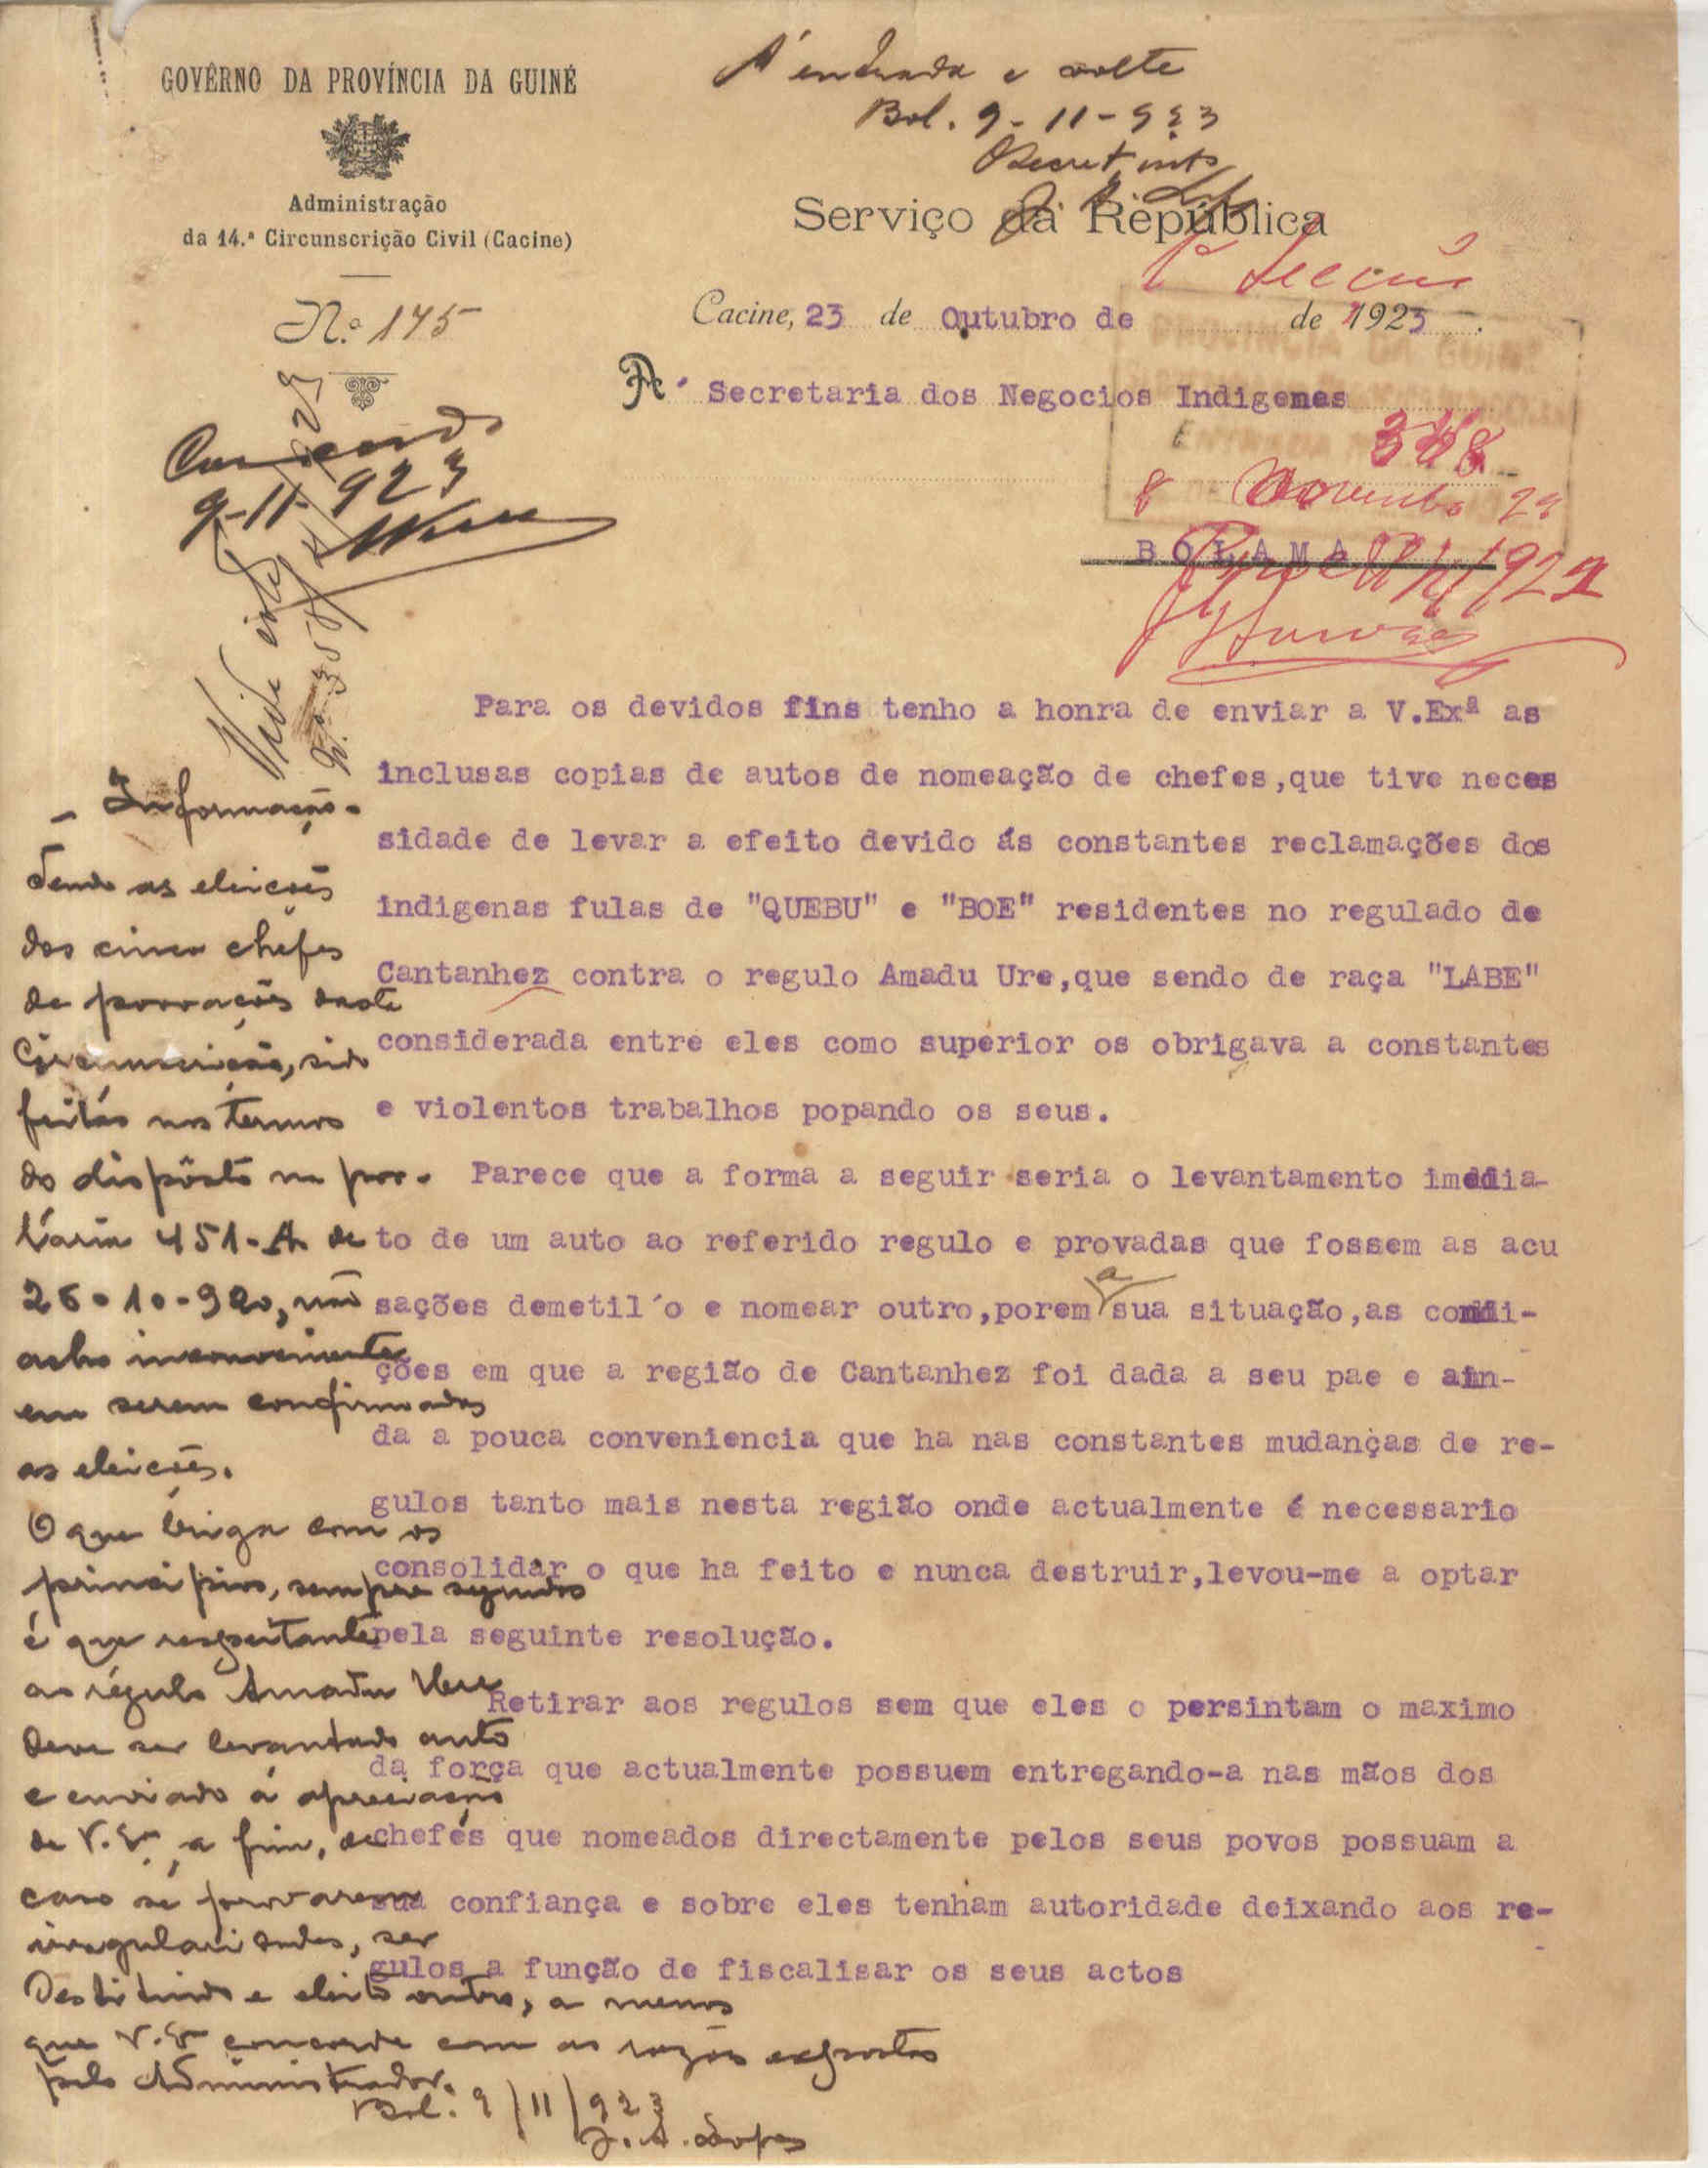 GOVÊRNO DA PROVÍNCIA DA GUINÉ
Administração
da 14.ª Circunscrição Civil (Cacine)
N.º 145
A' entrada e volte
Bol. 9-11-923
Secret. int.º
Serviço da República
1ª Secção
Cacine, 23 de Outubro de de 1923.
A' Secretaria dos Negocios Indigenas
PROVINCIA DA GUINÉ
ENTRADA
348
8 Novembro 23
BOLAMA
Concordo
9-11-923
Vide
Para os devidos fins tenho a honra de enviar a V.Exª as
inclusas copias de autos de nomeação de chefes,que tive neces
sidade de levar a efeito devido ás constantes reclamações dos
indigenas fulas de "QUEBU" e "BOE" residentes no regulado de
Cantanhez contra o regulo Amadu Ure,que sendo de raça "LABE"
considerada entre eles como superior os obrigava a constantes
e violentos trabalhos popando os seus.
Parece que a forma a seguir seria o levantamento imedia-
to de um auto ao referido regulo e provadas que fossem as acu
sações demetil´o e nomear outro,porem a sua situação,as condi-
ções em que a região de Cantanhez foi dada a seu pae e ain-
da a pouca conveniencia que ha nas constantes mudanças de re-
gulos tanto mais nesta região onde actualmente é necessario
consolidar o que ha feito e nunca destruir,levou-me a optar
pela seguinte resolução.
Retirar aos regulos sem que eles o persintam o maximo
da força que actualmente possuem entregando-a nas mãos dos
chefes que nomeados directamente pelos seus povos possuam a
sua confiança e sobre eles tenham autoridade deixando aos re-
gulos a função de fiscalisar os seus actos
- Informação -
Tendo as eleições
dos cinco chefes
de povoações desta
Circunscrição, sido
feitas nos termos
do dispôsto na por-
taria 451-A de
26-10-920, não
acho inconveniente
em serem confirmadas
as eleições.
O que briga com os
principios, sempre seguidos
é que respeitante
ao régulo Amadu Ure
deve ser levantado auto
e enviado á apreciação
de V. Exª, a fim, de
caso se provarem
irregularidades, ser
destituido e eleito outro, a menos
que V. Exª concorde com as razões expostas
pelo Administrador.
Bol. 9/11/923
J. A. Lopes